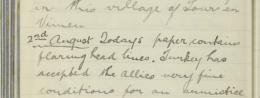 in this village of Tours en
Vimeu
2nd August Todays paper contains
flaring head lines. Turkey has
accepted the Allies very fine
conditions for an armistice